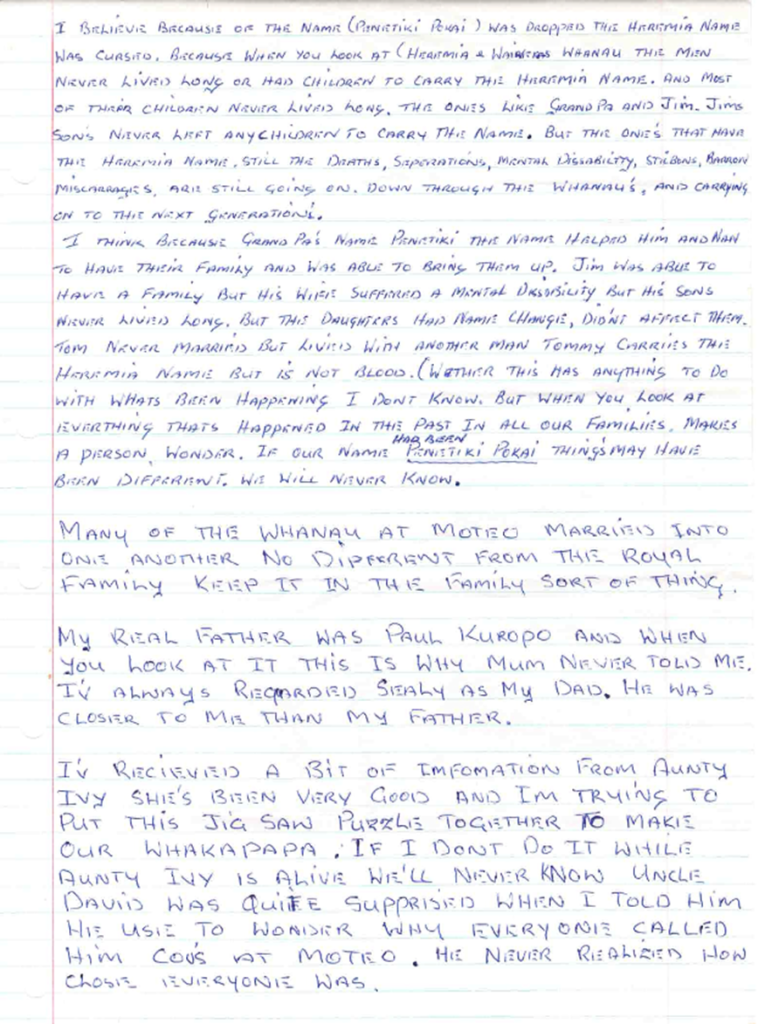 I BELIEVE BECAUSE OF THE NAME (PENETIKI POKAI) WAS DROPPED THE HEREMIA NAME
WAS CURSED. BECAUSE WHEN YOU LOOK AT (HEREMIA & WHANAU THE MEN
NEVER LIVED LONG OR HAD CHILDREN TO CARRY THE HEREMIA NAME. AND MOST
OF THEIR CHILDREN NEVER LIVED LONG. THE ONES LIKE GRANDPA AND JIM. JIMS
SONS NEVER LEFT ANYCHILDREN TO CARRY THE NAME. BUT THE ONE'S THAT HAVE
THE HEREMIA NAME. STILL THE DEATHS, SEPERATIONS, MENTAL DISSABILITY, STILBONS, BARRON
MISCARRAGES, ARE STILL GOING ON. DOWN THROUGH THE WHANAU'S, AND CARRYING
ON TO THE NEXT GENERATION'S.
I THINK BECAUSE GRAND PA'S NAME PENETIKI THE NAME HELPED HIM AND NAN
TO HAVE THEIR FAMILY AND WAS ABLE TO BRING THEM UP. JIM WAS ABLE TO
HAVE A FAMILY BUT HIS WIFE SUFFERED A MENTAL DISSIBILITY BUT HIS SONS
NEVER LIVED LONG. BUT THE DAUGHTERS HAD NAME CHANGE, DIDN'T AFFECT THEM.
TOM NEVER MARRIED BUT LIVED WITH ANOTHER MAN TOMMY CARRIES THE
HEREMIA NAME BUT IS NOT BLOOD. (WETHER THIS HAS ANYTHING TO DO
WITH WHATS BEEN HAPPENING I DONT KNOW. BUT WHEN YOU LOOK AT
EVERTHING THATS HAPPENED IN THE PAST IN ALL OUR FAMILIES. MAKES
A PERSON, WONDER. IF OUR NAME HAD BEEN PENETIKI POKAI THINGS MAY HAVE
BEEN DIFFERENT. WE WILL NEVER KNOW.
MANY OF THE WHANAU AT MOTEO MARRIED INTO
ONE ANOTHER NO DIFFERENT FROM THE ROYAL
FAMILY KEEP IT IN THE FAMILY SORT OF THING.
MY REAL FATHER WAS PAUL KUROPO AND WHEN
YOU LOOK AT IT THIS IS WHY MUM NEVER TOLD ME.
I'V ALWAYS REGARDED SEALY AS MY DAD. HE WAS
CLOSER TO ME THAN MY FATHER.
I'V RECIEVED A BIT OF IMFOMATION FROM AUNTY
IVY SHE'S BEEN VERY GOOD AND IM TRYING TO
PUT THIS JIG SAW PUZZLE TOGETHER TO MAKE
OUR WHAKAPAPA. IF I DONT DO IT WHILE
AUNTY IVY IS ALIVE WE'LL NEVER KNOW UNCLE
DAVID WAS QUITE SUPPRISED WHEN I TOLD HIM
HE USE TO WONDER WHY EVERYONE CALLED
HIM COUS AT MOTEO. HE NEVER REALIZED HOW
CLOSE EVERYONE WAS.